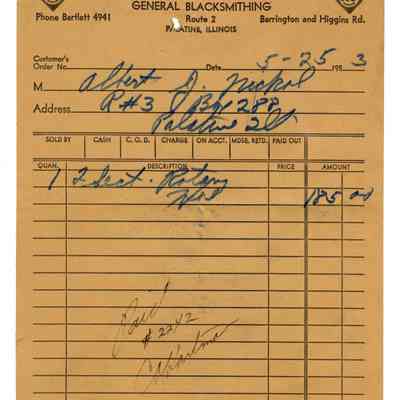 GENERAL BLACKSMITHING
Phone Bartlett 4941 Route 2 Barrington and Higgins Rd.
PALATINE, ILLINOIS
Customer's
Order No. Date 5-25 1953
M Albert J. Nickol
Address R#3 Box 288
Palatine Ill
SOLD BY CASH C.O.D. CHARGE ON ACCT. MDSE. RETD. PAID OUT
QUAN. DESCRIPTION PRICE AMOUNT
1 2 Sect. Rotary 185 00
Hoe
Paid
#2242